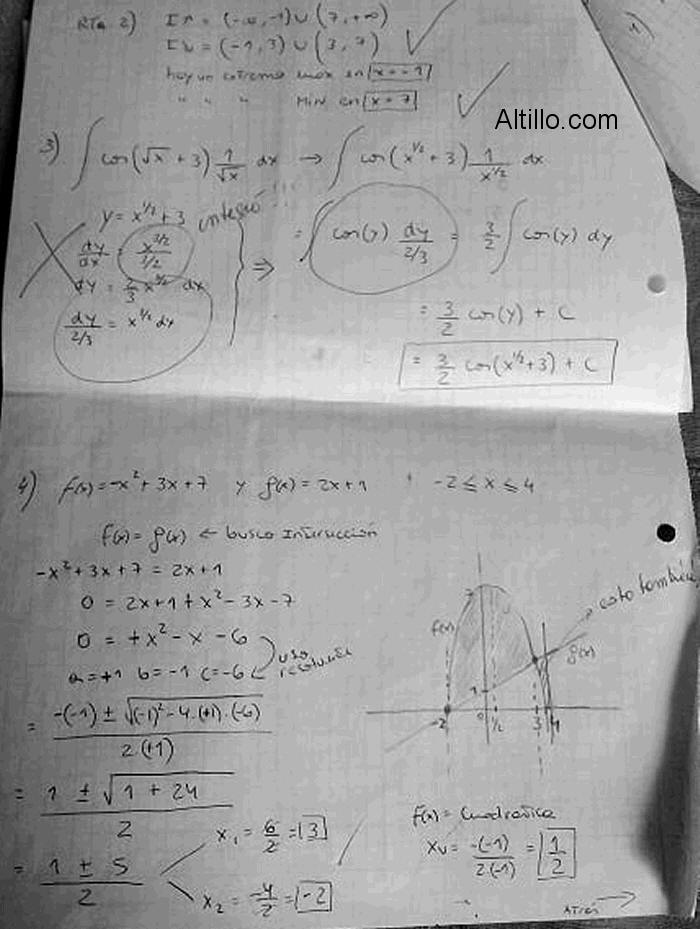 RTA 2) I↑ = (-∞, -1) ∪ (7, +∞)
I↓ = (-1, 3) ∪ (3, 7)
hay un extremo max en x = -1
" " " MIN en x = 7
Altillo.com
3) ∫ cos(√x + 3) 1/√x dx → ∫ cos(x^1/2 + 3) 1/x^1/2 dx
y = x^1/2 + 3 integró !!!
dy/dx = x^3/2 / 3/2
dy = 2/3 x^3/2 dx
dy / 2/3 = x^1/2 dx
⇒ = ∫ cos(y) dy / 2/3 = 3/2 ∫ cos(y) dy
= 3/2 cos(y) + C
= 3/2 cos(x^1/2 + 3) + C
4) f(x) = -x² + 3x + 7 y g(x) = 2x + 1 -2 ≤ x ≤ 4
f(x) = g(x) ← busco intersección
-x² + 3x + 7 = 2x + 1
0 = 2x + 1 + x² - 3x - 7
0 = +x² - x - 6
a = +1 b = -1 c = -6 ← uso
= -(-1) ± √(-1)² - 4.(+1).(-6) / 2.(+1)
= 1 ± √1 + 24 / 2
= 1 ± 5 / 2
x₁ = 6/2 = 3
x₂ = -4/2 = -2
esto también
7
f(x)
g(x)
1
-2 0 1/2 3 4
f(x) = Cuadratica
Xv = -(-1) / 2.(-1) = 1/2
ATRÁS →